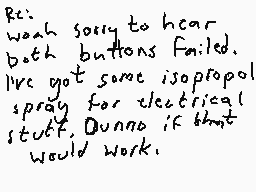 Re:
woah sorry to hear
both buttons failed.
I've got some isopropol
spray for electrical
stuff. Dunno if that
would work.